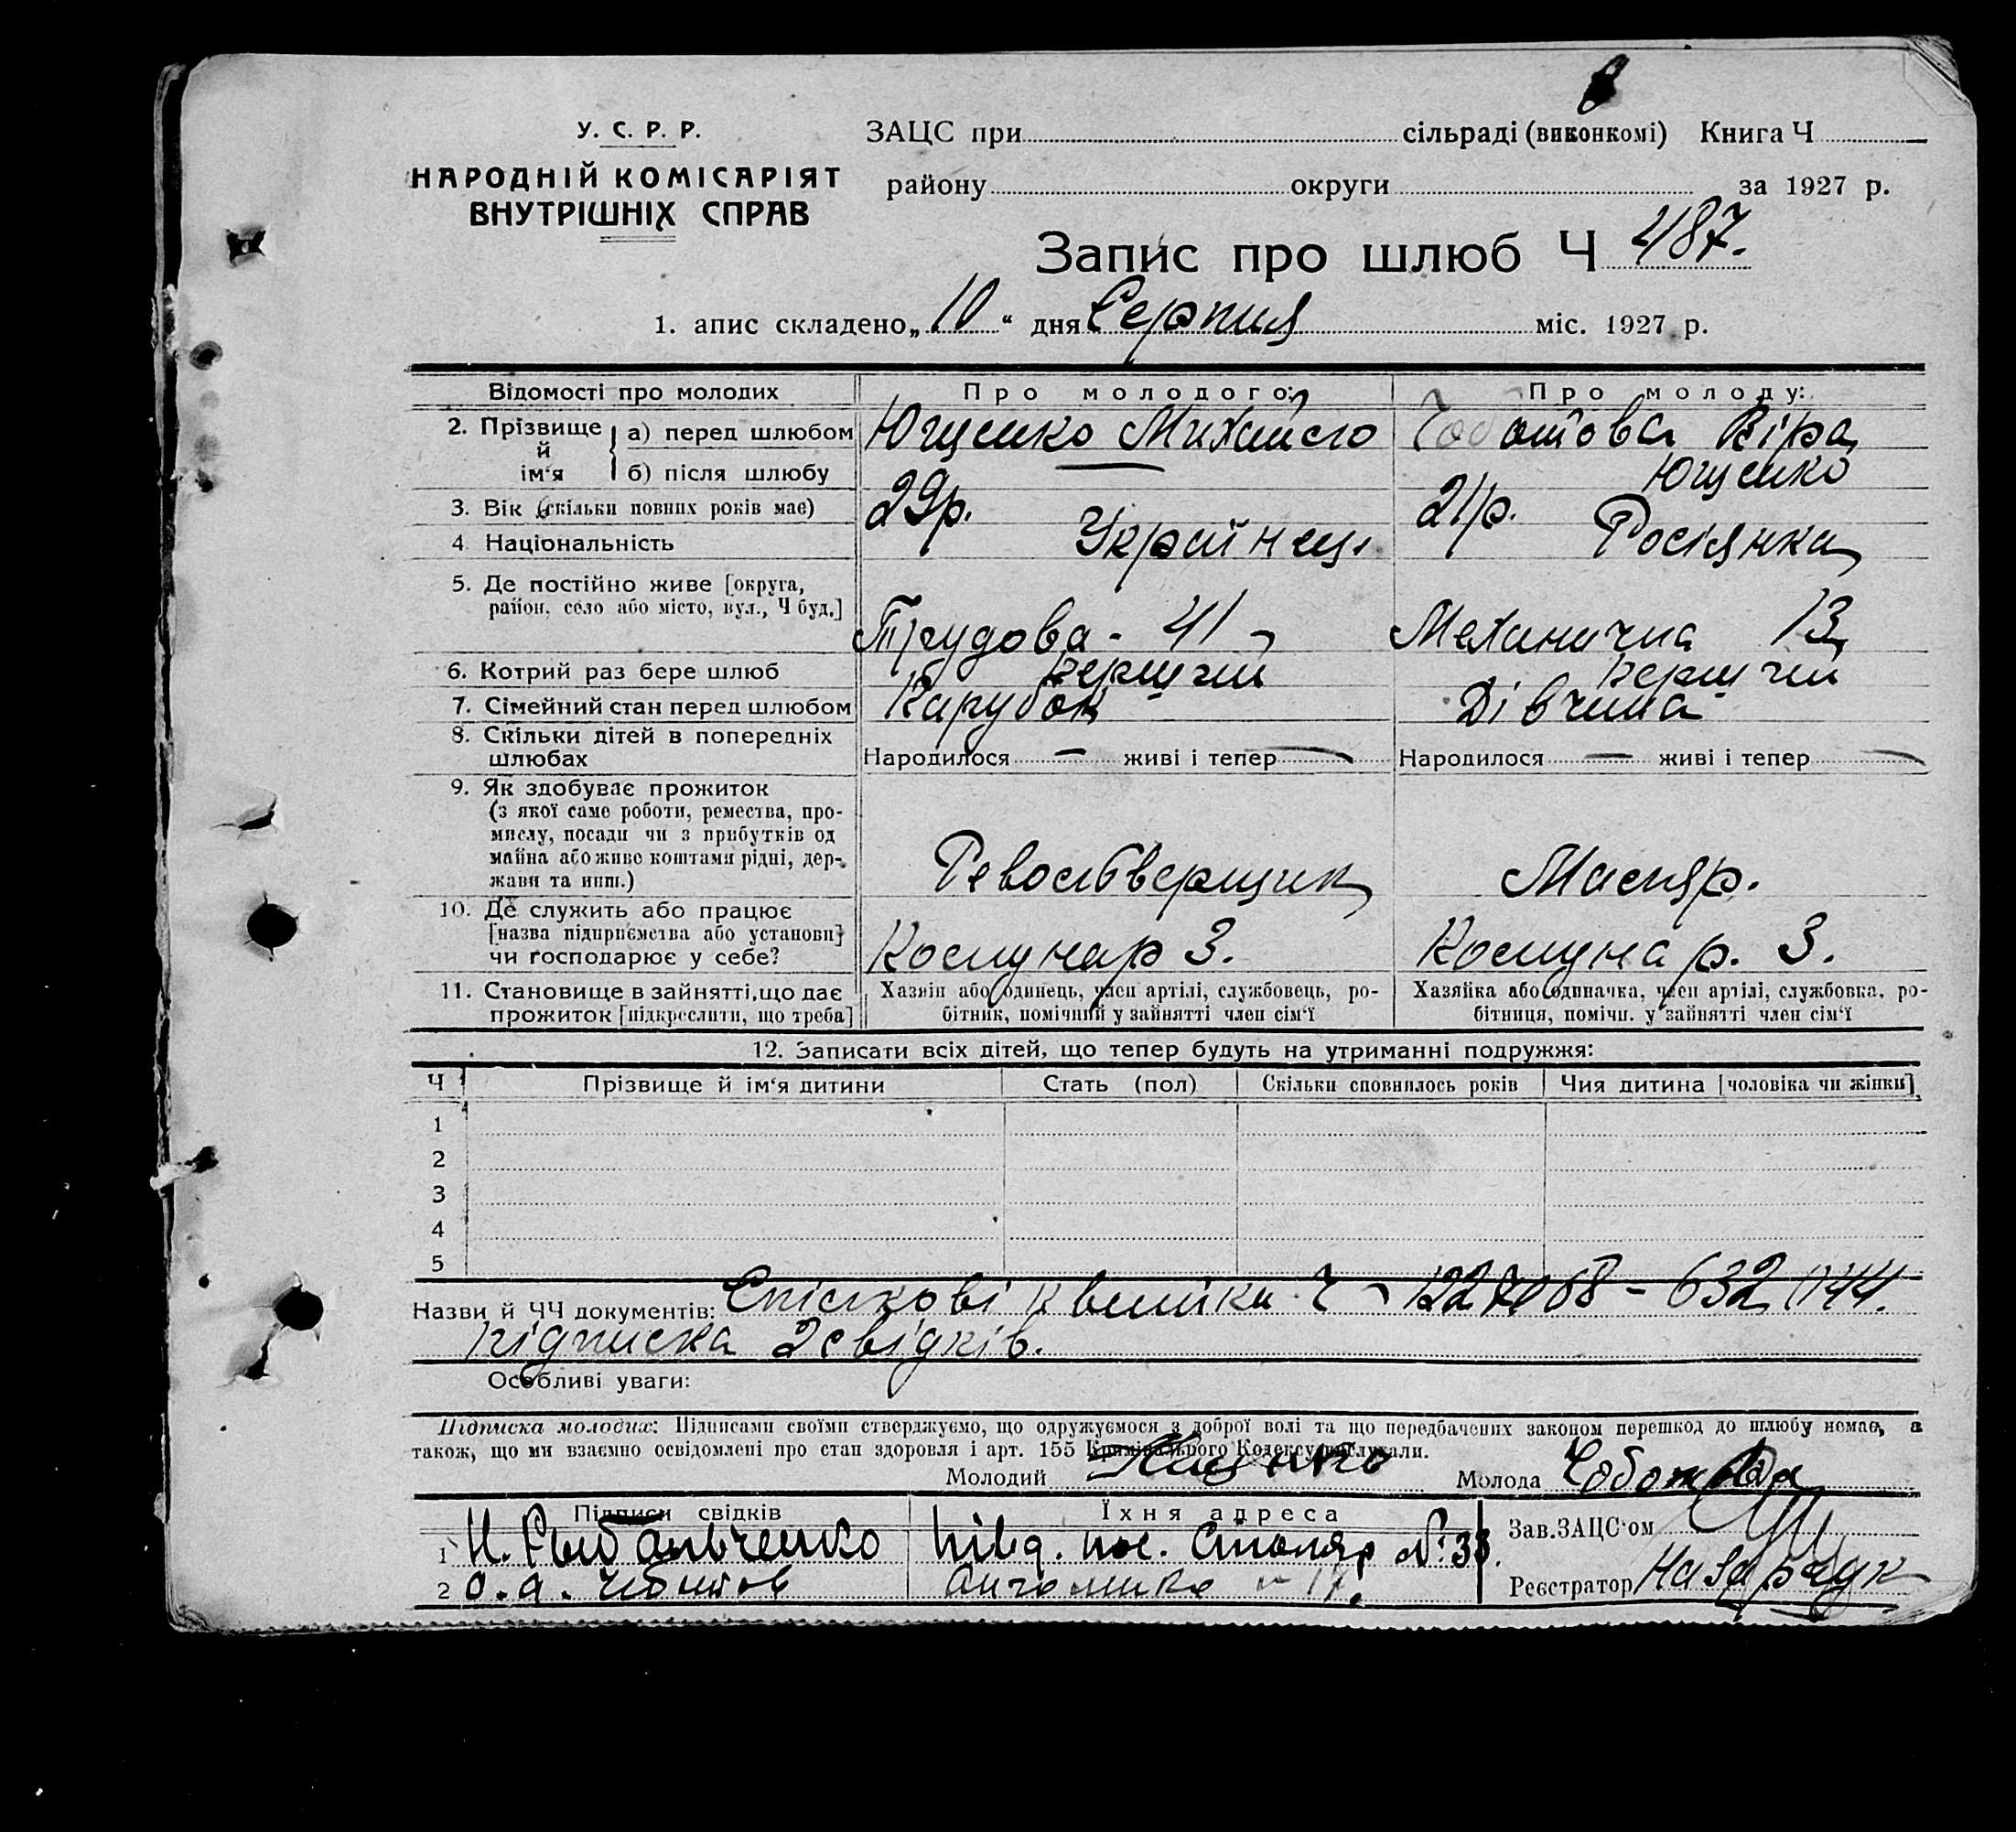 У. С. Р. Р.
НАРОДНІЙ КОМІСАРІЯТ
ВНУТРІШНІХ СПРАВ
ЗАЦС при сільраді (виконкомі) Книга Ч
району округи за 1927 р.
Запис про шлюб Ч 487.
1. апис складено „10“ дня Серпня міс. 1927 р.
Відомості про молодих Про молодого: Про молоду:
2. Прізвище й ім‘я а) перед шлюбом Ющенко Михайло Чоботова Віра
б) після шлюбу Ющенко
3. Вік (скільки повних років має) 29р. 21р.
4 Національність Українець Росіянка
5. Де постійно живе [округа,
район, село або місто, вул., Ч буд.] Трудова - 41 Механична 13
6. Котрий раз бере шлюб перший перший
7. Сімейний стан перед шлюбом Парубок Дівчина
8. Скільки дітей в попередніх
шлюбах Народилося — живі і тепер — Народилося — живі і тепер —
9. Як здобуває прожиток
(з якої саме роботи, ремества, про-
мислу, посади чи з прибутків од
майна або живе коштами рідні, дер-
жави та инш.) Револьверщик Маляр.
10. Де служить або працює
[назва підприємства або установи]
чи господарює у себе? Комунар 3. Комунар. 3.
11. Становище в зайнятті, що дає Хазяїн або одинець, член артілі, службовець, ро- Хазяйка або одиначка, член артілі, службовка, ро-
прожиток [підкреслити, що треба] бітник, помічний у зайнятті член сім‘ї бітниця, помічн. у зайнятті член сім‘ї
12. Записати всіх дітей, що тепер будуть на утриманні подружжя:
Ч Прізвище й ім‘я дитини Стать (пол) Скільки сповнилось років Чия дитина [чоловіка чи жінки]
1
2
3
4
5
Назви й ЧЧ документів: Спілкові квитки Ч
підписка 2 свідків.
Особливі уваги:
Підписка молодих: Підписами своїми стверджуємо, що одружуємося з доброї волі та що передбачених законом перешкод до шлюбу немає, а
також, що ми взаємно освідомлені про стан здоровля і арт. 155 Кримінального Кодексу вислухали.
Молодий Ющенко Молода Чоботова
Підписи свідків Їхня адреса Зав. ЗАЦС‘ом
1 №38.
2 17. Реєстратор